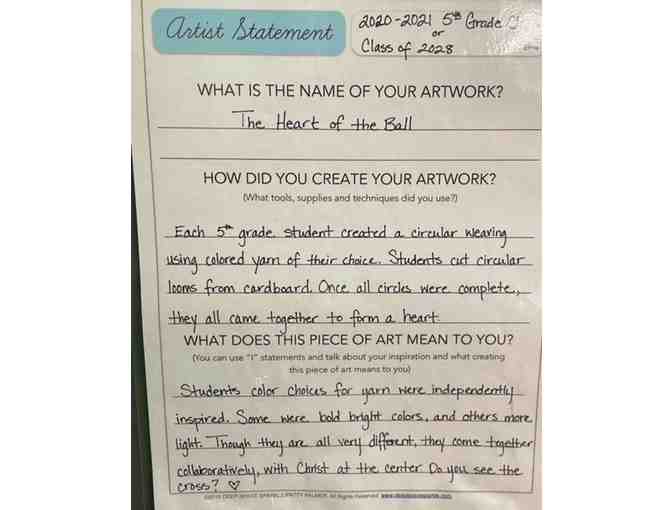 Artist Statement
2020-2021 5th Grade
or
Class of 2028
WHAT IS THE NAME OF YOUR ARTWORK?
The Heart of the Ball
HOW DID YOU CREATE YOUR ARTWORK?
(What tools, supplies and techniques did you use?)
Each 5th grade student created a circular weaving
using colored yarn of their choice. Students cut circular
looms from cardboard. Once all circles were complete,
they all came together to form a heart.
WHAT DOES THIS PIECE OF ART MEAN TO YOU?
(You can use "I" statements and talk about your inspiration and what creating
this piece of art means to you)
Students color choices for yarn were independently
inspired. Some were bold bright colors, and others more
light. Though they are all very different, they come together
collaboratively, with Christ at the center. Do you see the
cross? ♡
DEEP SPACE SPARKLE/PATTY PALMER. All Rights Reserved. www.deepspacesparkle.com